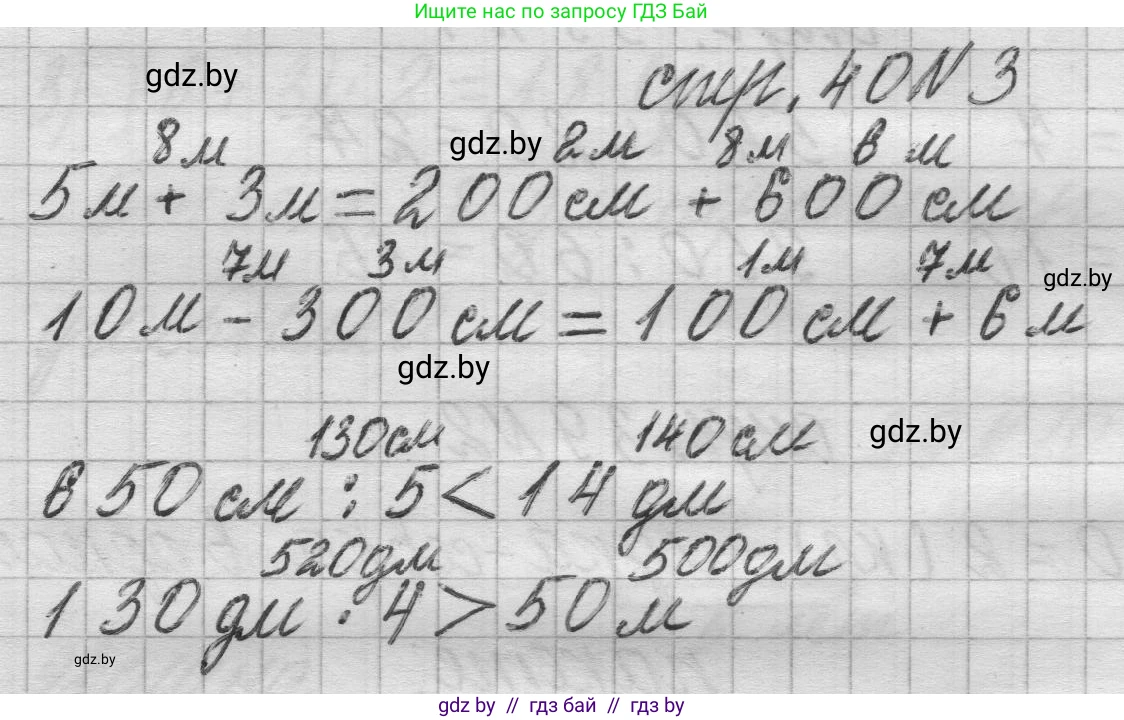 Ищите нас по запросу ГДЗ Бай
gdz.by
стр. 40 N 3
8м gdz.by 2м 8м 6 м
5м + 3м = 200 см + 600 см
7м 3м 1м 7м gdz.by
10м - 300 см = 100 см + 6 м
gdz.by
130см 140 см gdz.by
650 см : 5 < 14 дм
520дм 500дм
130 дм · 4 > 50 м
gdz.by
gdz.by // гдз бай // гдз by